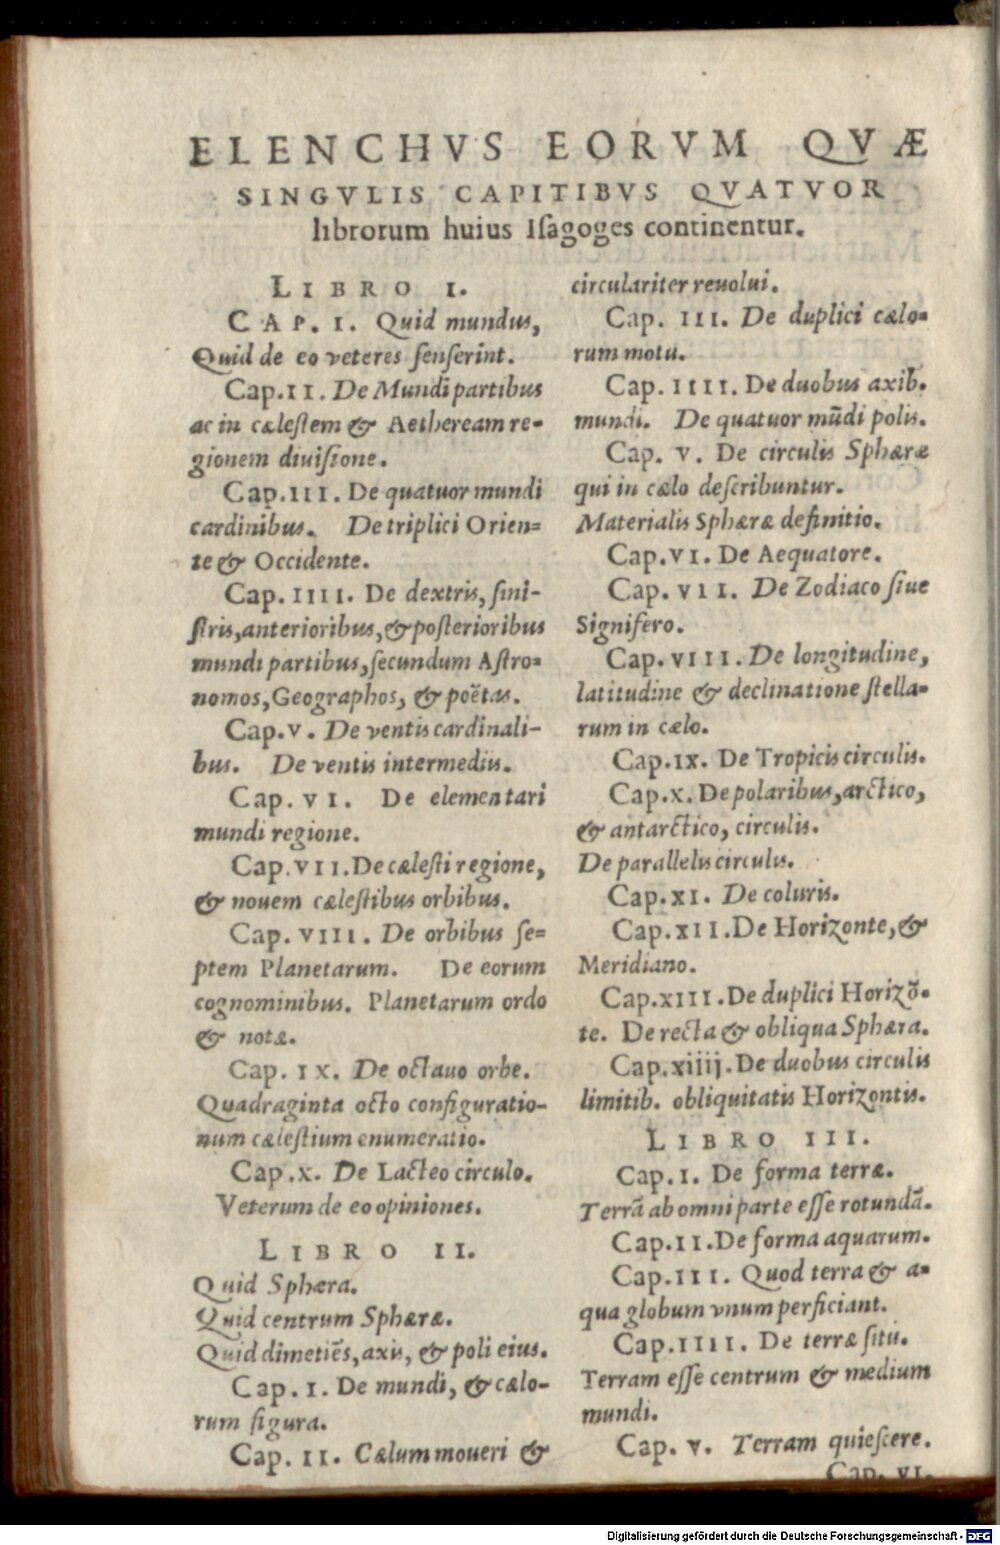 ELENCHVS EORVM QVÆ
SINGVLIS CAPITIBVS QVATVOR
librorum huius Iſagoges continentur.
LIBRO I.
CAP. I. Quid mundus,
Quid de eo veteres ſenſerint.
Cap. II. De Mundi partibus
ac in cæleſtem & Aetheream re-
gionem diuiſione.
Cap. III. De quatuor mundi
cardinibus. De triplici Orien-
te & Occidente.
Cap. IIII. De dextris, ſini-
ſtris, anterioribus, & poſterioribus
mundi partibus, ſecundum Aſtro-
nomos, Geographos, & poëtas.
Cap. V. De ventis cardinali-
bus. De ventis intermediis.
Cap. VI. De elementari
mundi regione.
Cap. VII. De cæleſti regione,
& nouem cæleſtibus orbibus.
Cap. VIII. De orbibus ſe-
ptem Planetarum. De eorum
cognominibus. Planetarum ordo
& notæ.
Cap. IX. De octauo orbe.
Quadraginta octo configuratio-
num cæleſtium enumeratio.
Cap. X. De Lacteo circulo.
Veterum de eo opiniones.
LIBRO II.
Quid Sphæra.
Quid centrum Sphæræ.
Quid dimetiēs, axis, & poli eius.
Cap. I. De mundi, & cælo-
rum figura.
Cap. II. Cælum moueri &
circulariter reuolui.
Cap. III. De duplici cælo-
rum motu.
Cap. IIII. De duobus axib.
mundi. De quatuor mūdi polis.
Cap. V. De circulis Sphæræ
qui in cælo deſcribuntur.
Materialis Sphæræ definitio.
Cap. VI. De Aequatore.
Cap. VII. De Zodiaco ſiue
Signifero.
Cap. VIII. De longitudine,
latitudine & declinatione ſtella-
rum in cælo.
Cap. IX. De Tropicis circulis.
Cap. X. De polaribus, arctico,
& antarctico, circulis.
De parallelis circulis.
Cap. XI. De coluris.
Cap. XII. De Horizonte, &
Meridiano.
Cap. XIII. De duplici Horizō-
te. De recta & obliqua Sphæra.
Cap. xiiij. De duobus circulis
limitib. obliquitatis Horizontis.
LIBRO III.
Cap. I. De forma terræ.
Terrā ab omni parte eſſe rotundā.
Cap. II. De forma aquarum.
Cap. III. Quod terra & a-
qua globum vnum perficiant.
Cap. IIII. De terræ ſitu.
Terram eſſe centrum & medium
mundi.
Cap. V. Terram quieſcere.
Cap. VI.
Digitalisierung gefördert durch die Deutsche Forschungsgemeinschaft - DFG